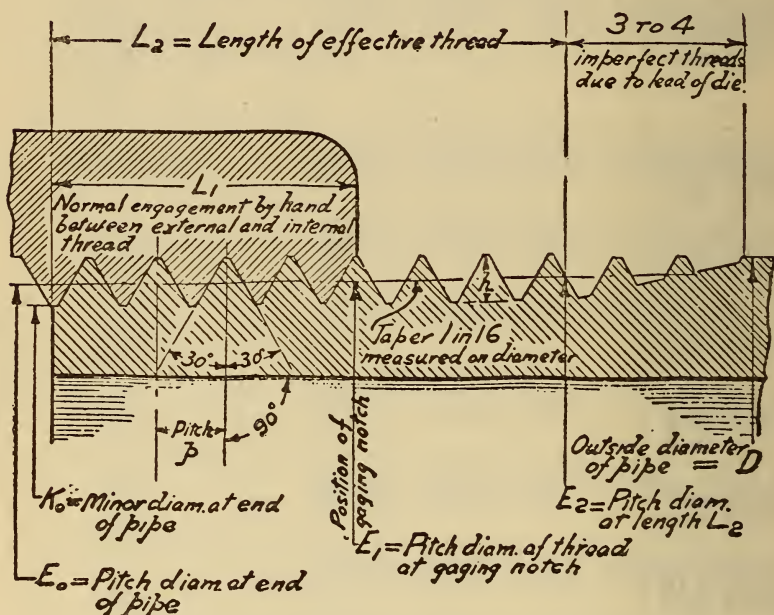 L₂ = Length of effective thread
3 TO 4
imperfect threads
due to lead of die.
L₁
Normal engagement by hand
between external and internal
thread
h
Taper 1 in 16
measured on diameter
30° 30°
90°
Pitch
p
Position of
gaging notch
Outside diameter
of pipe = D
K₀ = Minor diam. at end
of pipe
E₂ = Pitch diam.
at length L₂
E₁ = Pitch diam. of thread
at gaging notch
E₀ = Pitch diam. at end
of pipe